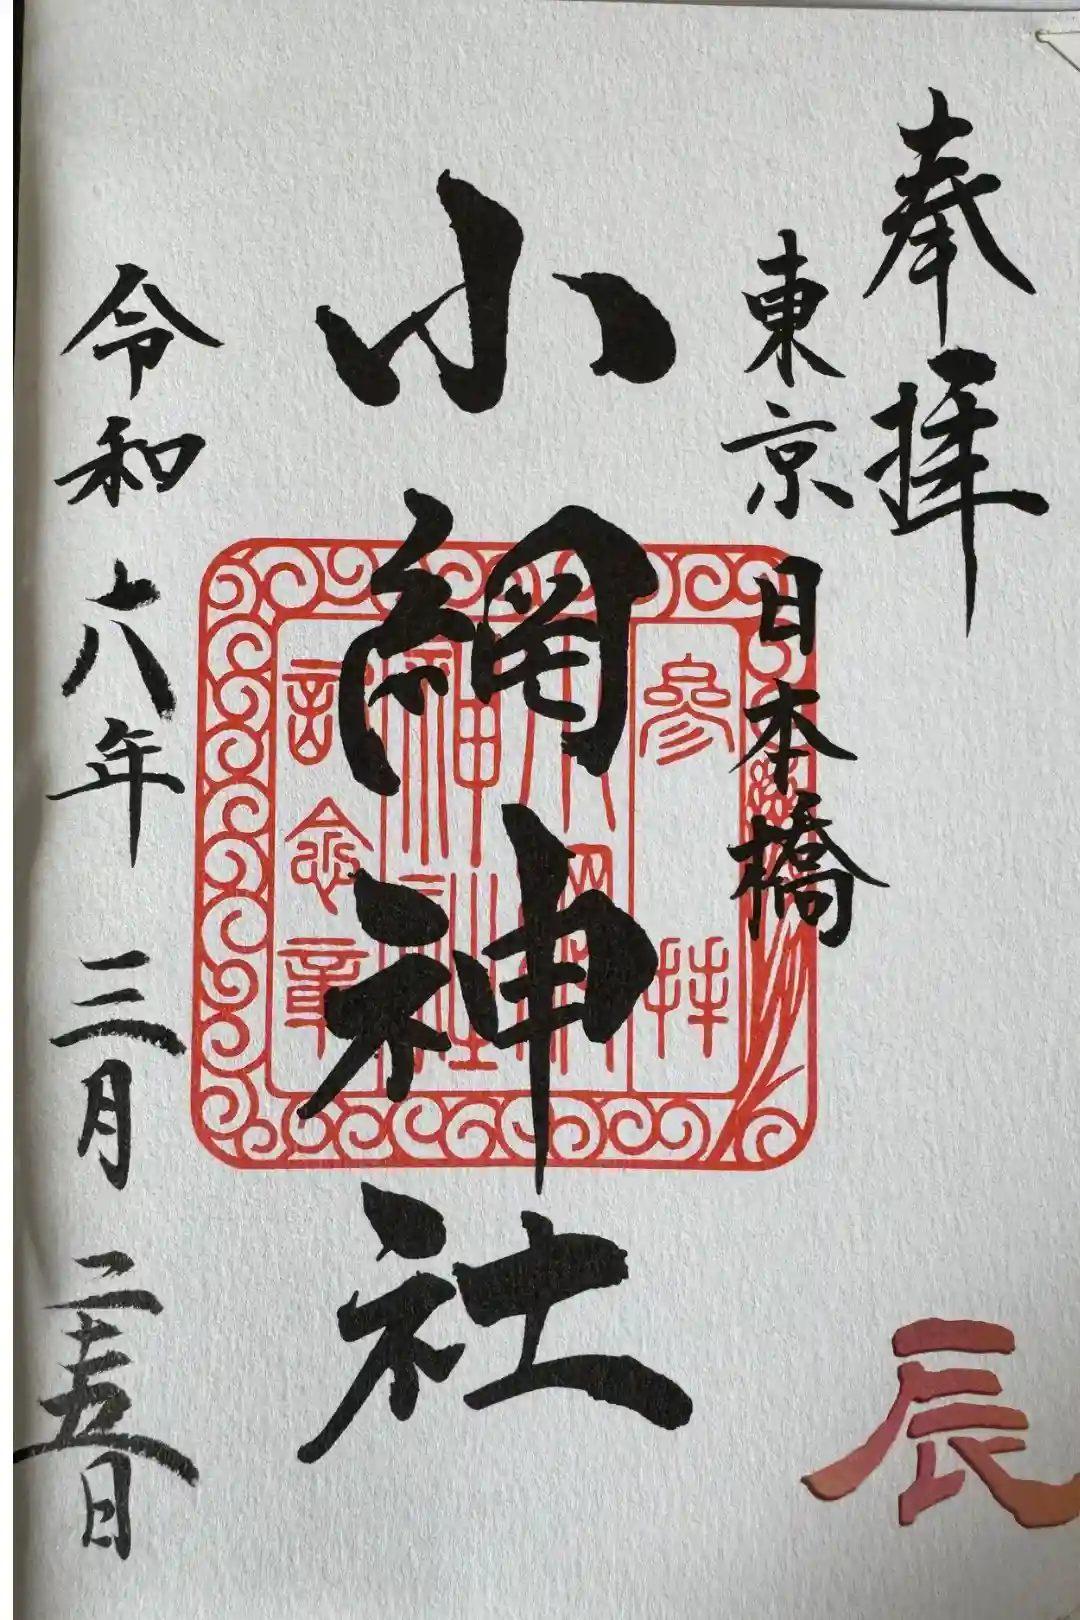 奉拝
東京 日本橋
小網神社
令和六年 三月 二十五日
參拝
小網
神社
記念章
辰